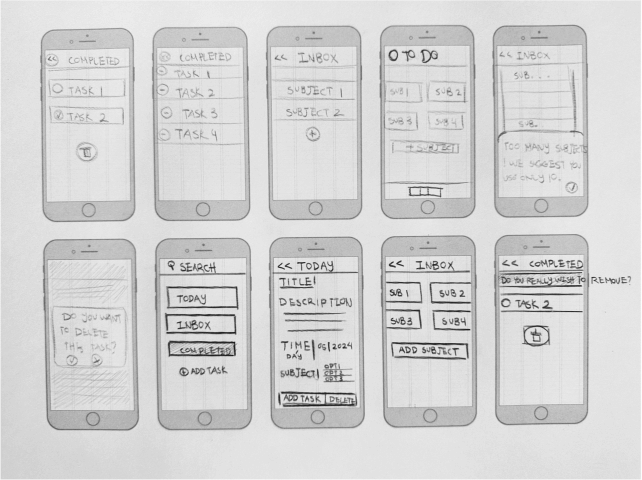 << COMPLETED
TASK 1
TASK 2
COMPLETED
TASK 1
TASK 2
TASK 3
TASK 4
<< INBOX
SUBJECT 1
SUBJECT 2
TO DO
SUB 1 SUB 2
SUB 3 SUB 4
+ SUBJECT
<< INBOX
SUB...
SUB.
TOO MANY SUBJECTS
! WE SUGGEST YOU
USE ONLY 10.
DO YOU WANT
TO DELETE
THIS TASK?
SEARCH
TODAY
INBOX
COMPLETED
+ ADD TASK
<< TODAY
TITLE
DESCRIPTION
TIME 05/2024
DAY
SUBJECT OPT 1
OPT 2
OPT 3
ADD TASK DELETE
<< INBOX
SUB 1 SUB 2
SUB 3 SUB 4
ADD SUBJECT
<< COMPLETED
DO YOU REALLY WISH TO REMOVE?
TASK 2